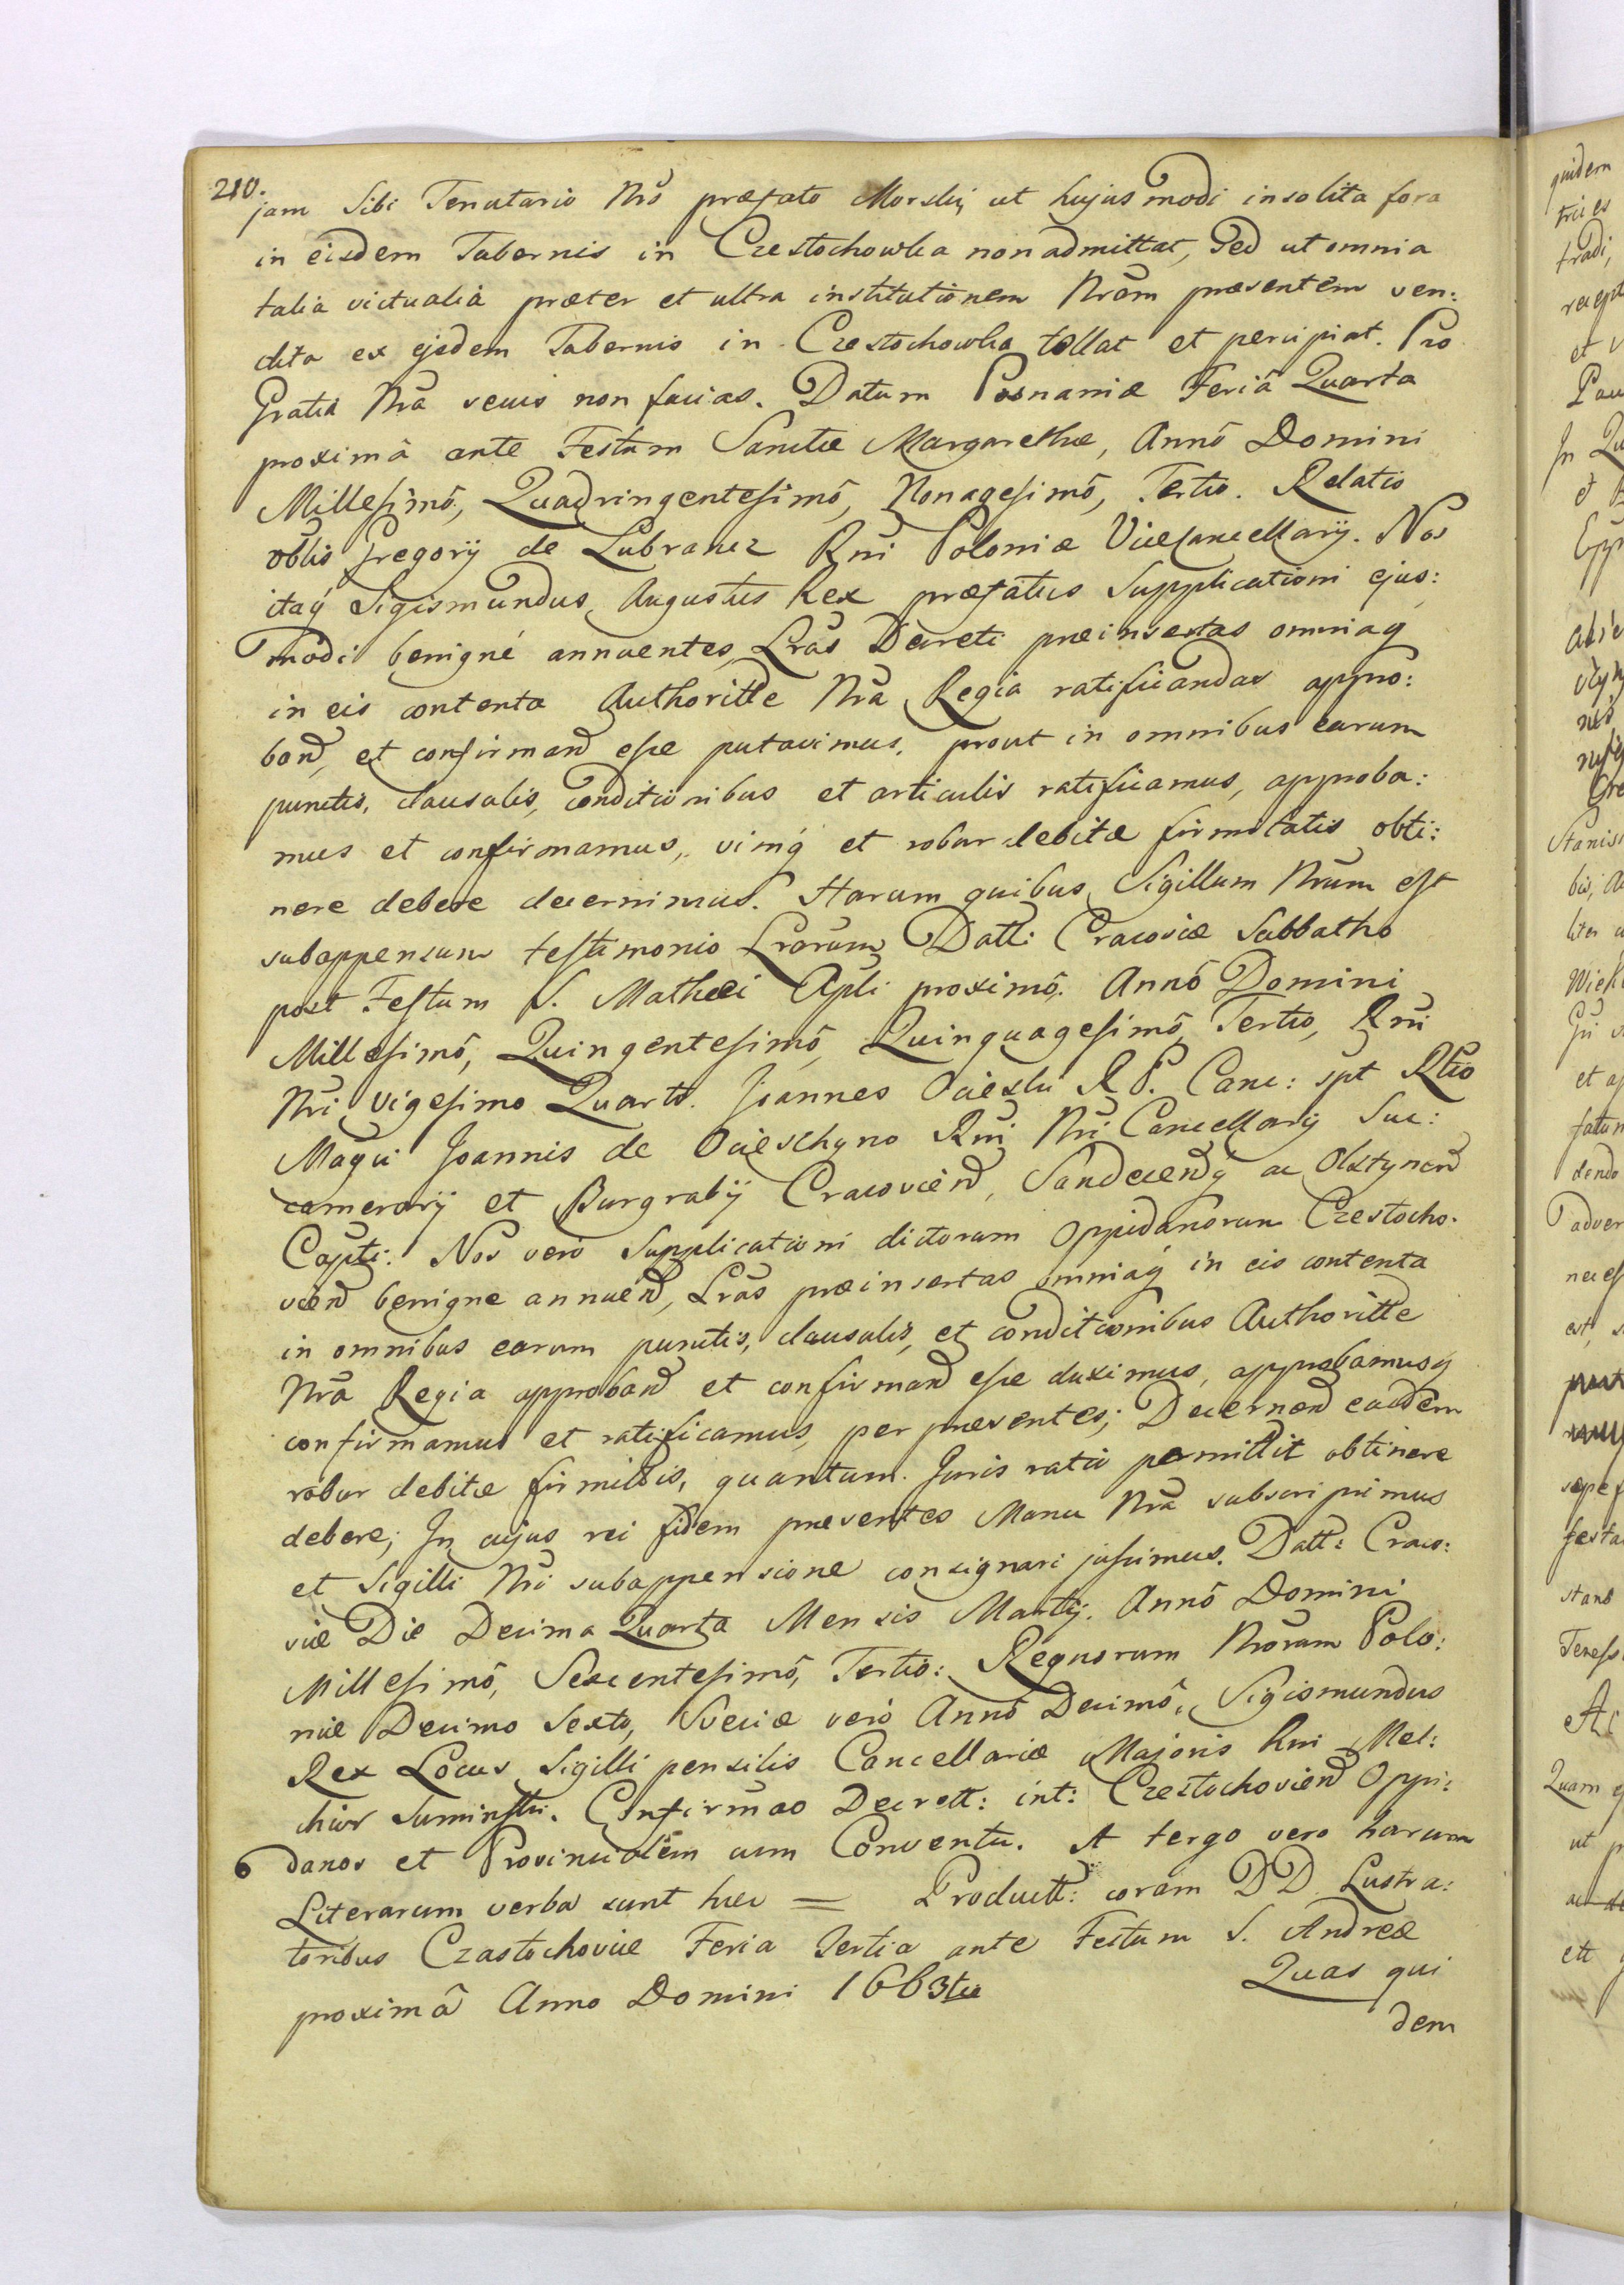 210.
jam Sibi Tenutario Nrõ præfato Morski, ut hujusmodi insolita fora
in eisdem Tabernis in Czestochowka non admittat, Sed ut omnia
talia victualia præter et ultra institutionem Nrãm præsentem ven:
dita ex ejsdem Tabernis in Czestochowka tollat et percipiat. Pro
Gratia Nrã secus non facias. Datum Posnaniæ Feriâ Quarta
proximâ ante Festum Sanctæ Margarethæ, Annô Domini
Millesimô, Quadringentesimô, Nonagesimô, Tertio. Relatio
Gregorij de Lubrancz Rni Poloniæ Vicecancellarij. Nos
itaq́ Sigismundus Augustus Rex præfatus Supplicationi ejus:
modi benignè annuentes, Lrãs Decreti præinsertas omniaq́
in eis contenta Authoritte Nrã Regia ratificandas appro:
band, et confirmand esse putavimus, prout in omnibus earum
punctis, clausulis, conditionibus et articulis ratificamus, approba:
mus et confirmamus, vimq́ et robur debitæ firmitatis obti:
nere debere decernimus. Harum quibus Sigillum Nrũm est
subappensum testimonio Lrarum Datt: Cracoviæ Sabbatho
post Festum S. Mathæi Apli proximô. Annô Domini
Millesimô, Quingentesimô, Quinquagesimô, Tertio, Rni
Nri Vigesimo Quarto. Joannes Ocieski R. P. Canc: spt Rltio
Magci Joannis de Ocieschyno Rni Nri Cancellarij Suc:
camerarij et Burgrabij Cracoviend, Sandecendq́ ac Olstynend
Capti: Nos verò Supplicationi dictorum Oppidanorum Czestocho:
viend benigne annuend, Lrãs præinsertas omniaq́ in eis contenta
in omnibus earum punctis, clausulis, et conditionibus Authoritte
Nrã Regia approband et confirmand esse duximus, approbamusq́
confirmamus et ratificamus, per præsentes; Decernend easdem
robur debitæ firmittis, quantum Juris ratio permittit obtinere
debere; In cujus rei fidem præsentes Manu Nrã subscripsimus
et Sigilli Nri subappensione consignari jussimus. Datt: Craco:
viæ Die Decima Quarta Mensis Martij. Annô Domini
Millesimô, Sexcentesimô, Tertio: Regnorum Nrorum Polo:
niæ Decimo Sexto, Sveciæ verò Annô Decimô. Sigismundus
Rex Locus Sigilli pensilis Cancellariæ Majoris Rni Mel:
chior Confirmao Decrett: int: Czestochoviend Oppi:
danos et Provincialem cum Conventu. A tergo vero harum
Literarum verba sunt hæc = Productt: coram DD. Lustra:
toribus Czastochoviæ Feria Tertia ante Festum S. Andreæ
proximâ Anno Domini 1663tio Quas qui
dem